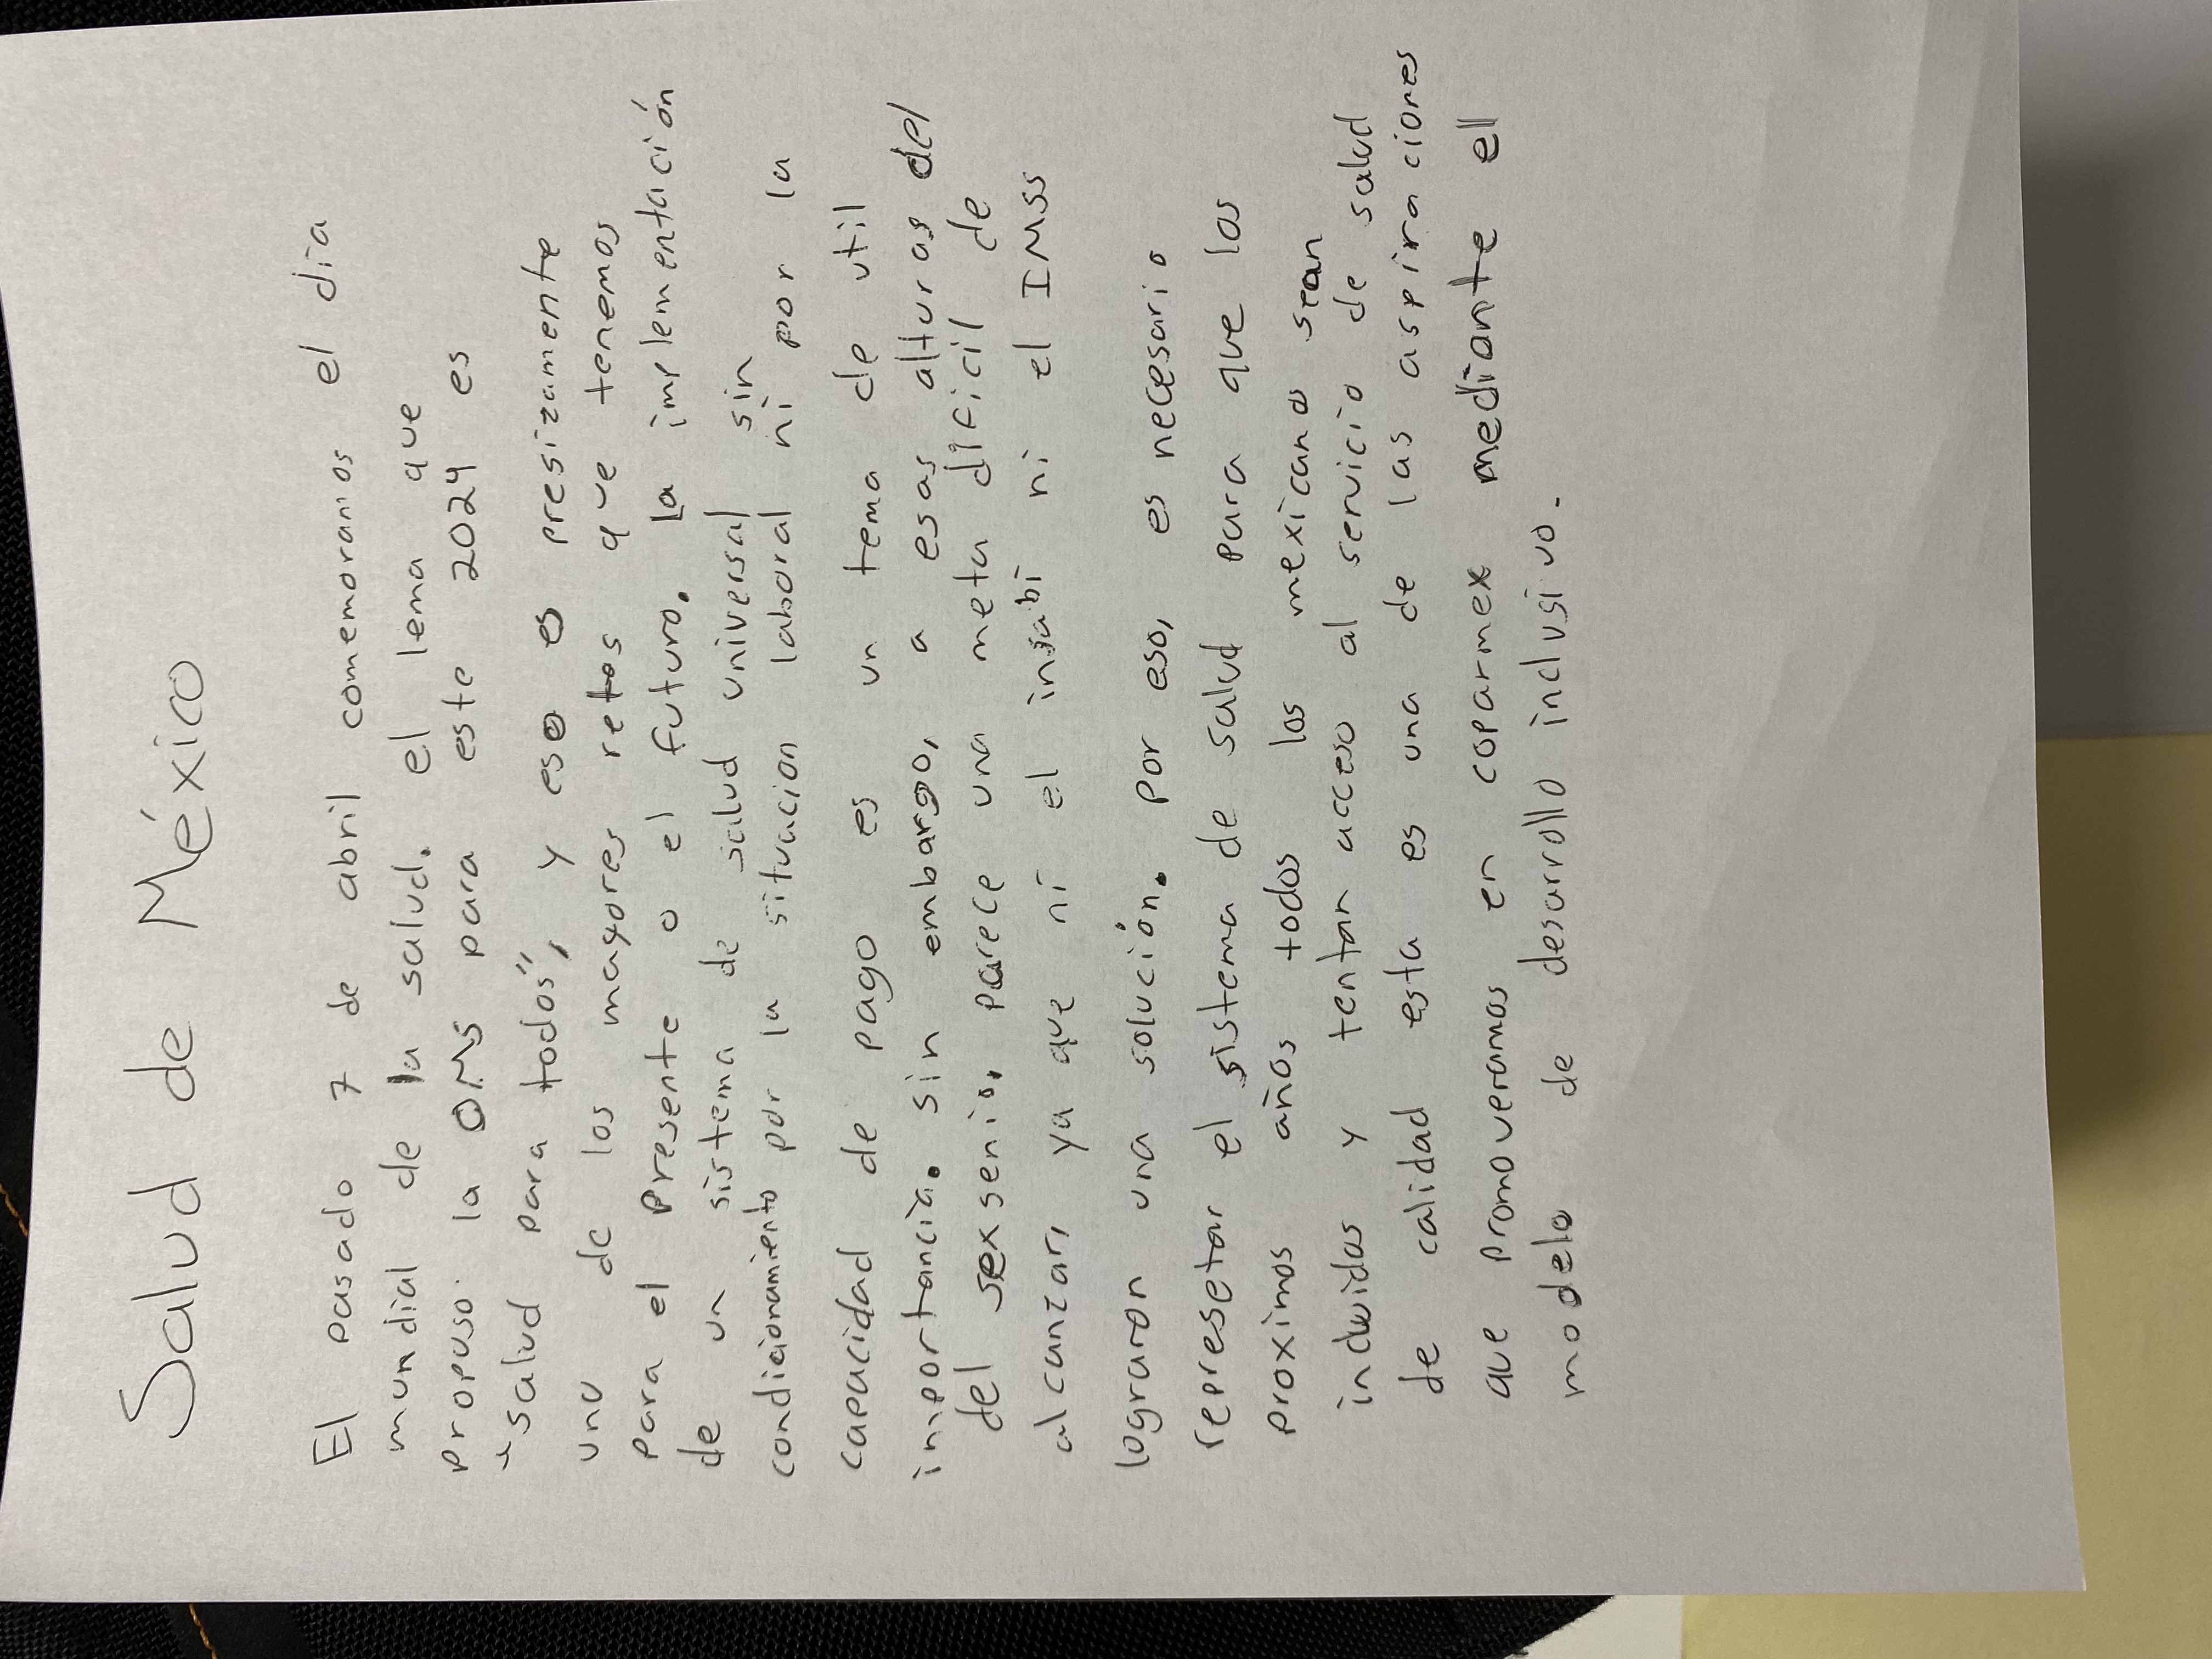 Salud de México
El pasado 7 de abril comemoramos el dia
mundial de la salud. el lema que
propuso la OMS para este 2024 es
"salud para todos", y eso es presizamente
uno de los mayores retos que tenemos
para el presente o el futuro. la implementación
de un sistema de salud universal sin
condicionamiento por la situacion laboral ni por la
capacidad de pago es un tema de util
importancia. sin embargo, a esas alturas del
del sexsenio, parece una meta dificil de
alcanzar, ya que ni el insabi ni el IMSS
lograron una solución. por eso, es necesario
represetar el sistema de salud para que los
proximos años todos los mexicanos sean
incluidos y tentan acceso al servicio de salud
de calidad esta es una de las aspiraciones
que promoveramos en coparmex mediante el
modelo de desarrollo inclusivo.